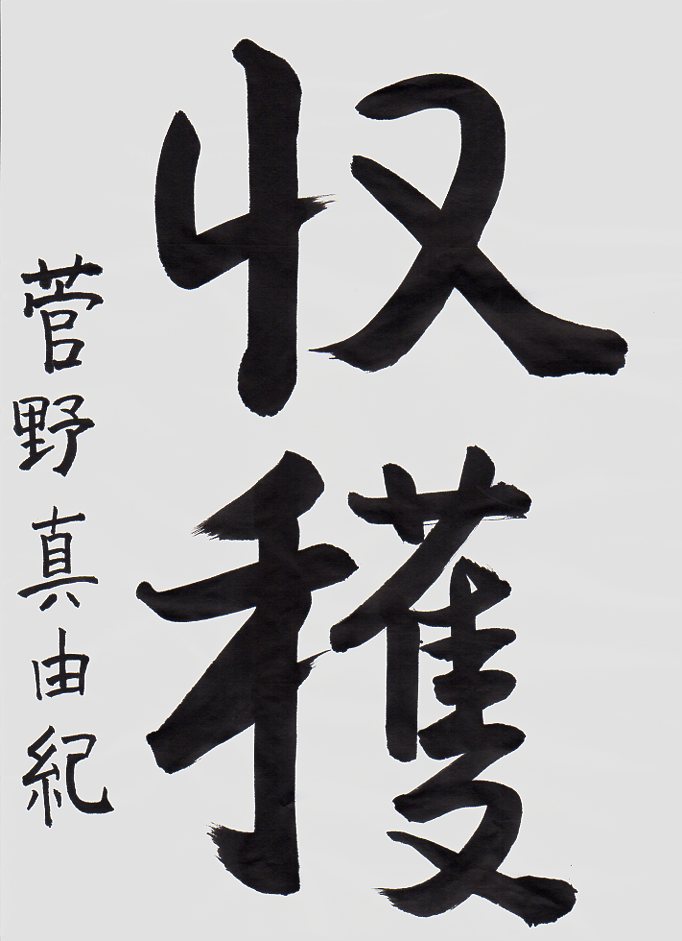 収穫
菅野真由紀